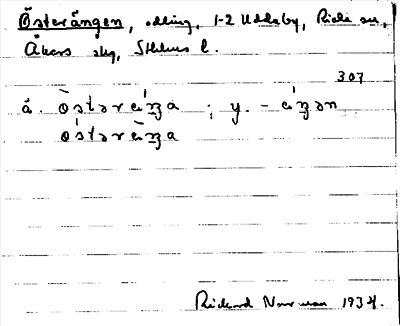 Österängen, odling, 1-2 Uddeby, Riala sn,
Åkers skg, Sthlms l.
307
å. östəräŋa ; y. - äŋən
östəräŋa
Rickard Norrman 1934.